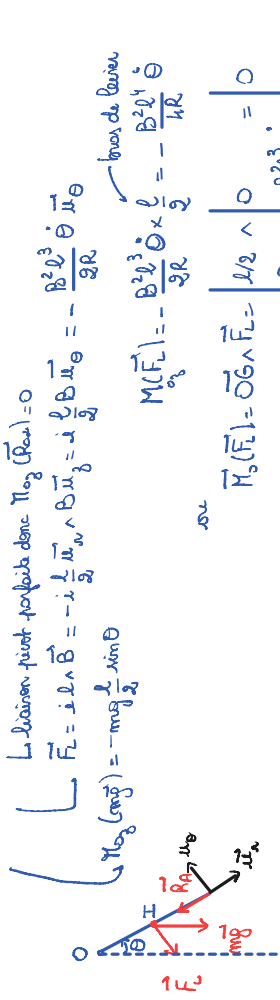 L liaison pivot parfaite donc M_oz(R⃗_axe) = 0
F⃗_L = i l ∧ B⃗ = - i l/2 u⃗_r ∧ B u⃗_z = i l/2 B u⃗_θ = - B²l³/2R θ̇ u⃗_θ
M_oz(mg⃗) = - mg l/2 sinθ
bras de levier
M_oz(F⃗_L) = - B²l³/2R θ̇ × l/2 = - B²l⁴/4R θ̇
ou
M⃗_o(F⃗_L) = O⃗G ∧ F⃗_L = | l/2 ∧ | 0 = | 0
O
θ
H
R⃗_A
u⃗_θ
u⃗_r
F⃗_L
mg⃗